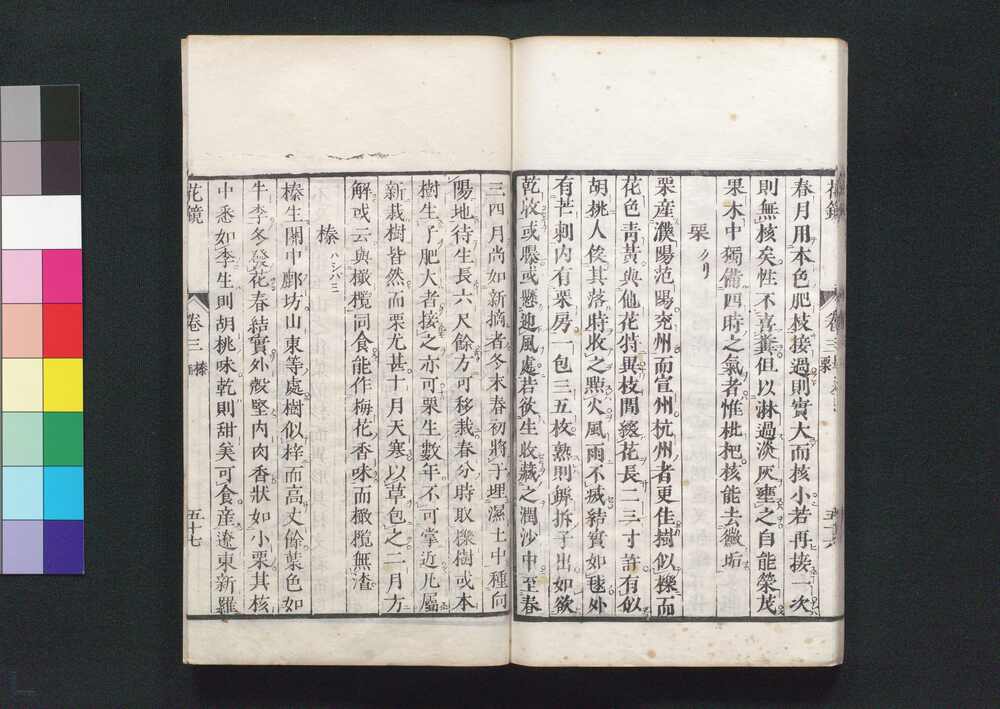 春月用本色肥枝接過則實大而核小若再接一次
則無核矣性不喜糞但以淋過淡灰壅之自能榮茂
果木中獨備四時之氣者惟枇杷核能去黴垢
栗 クリ
栗産濮陽范陽兗州而宣州杭州者更佳樹似櫟而
花色青黃與他花特異枝間綴花長二三寸許有似
胡桃人俟其落時收之點火風雨不滅結實如毬外
有芒刺內有栗房一包三五枚熟則罅拆子出如欲
乾收或曝或懸迎風處若欲生收藏之潤沙中至春
三四月尚如新摘者冬末春初將子埋濕土中種向
陽地待生長六尺餘方可移栽春分時取櫟樹或本
樹生子肥大者接之亦可栗生數年不可掌近凡屬
新栽樹皆然而栗尤甚十月天寒以草包之二月方
解或云與橄欖同食能作梅花香味而橄欖無渣
榛 ハシバミ
榛生關中鄜坊山東等處樹似梓而高丈餘葉色如
牛李冬發花春結實外殼堅內肉香狀如小栗其核
中悉如李生則胡桃味乾則甜美可食産遼東新羅
花鏡 卷三 榛 五十七